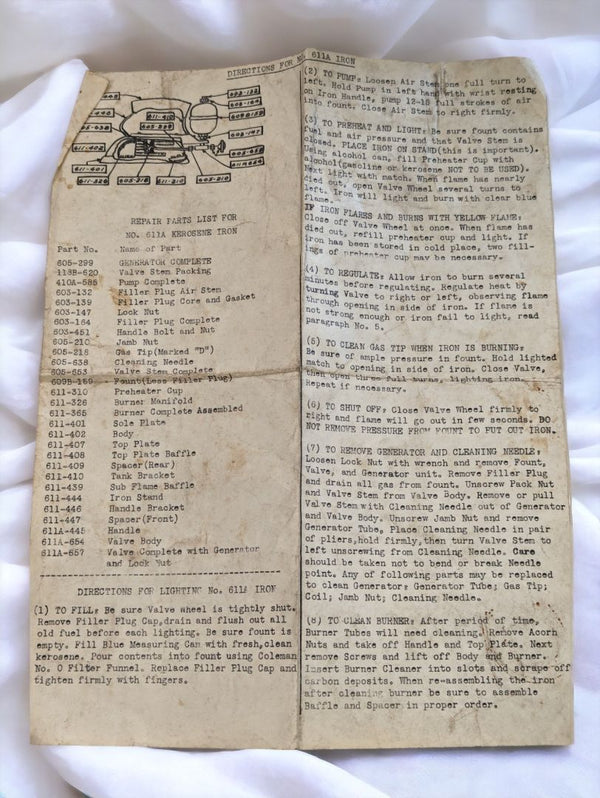 DIRECTIONS FOR NO. 611A IRON
REPAIR PARTS LIST FOR
NO. 611A KEROSENE IRON
Part No. Name of Part
605-299 GENERATOR COMPLETE
118B-620 Valve Stem Packing
410A-585 Pump Complete
603-132 Filler Plug Air Stem
603-139 Filler Plug Core and Gasket
603-147 Lock Nut
603-164 Filler Plug Complete
603-451 Handle Bolt and Nut
605-210 Jamb Nut
605-218 Gas Tip(Marked "D")
605-638 Cleaning Needle
605-653 Valve Stem Complete
609B-159 Fount(Less Filler Plug)
611-310 Preheater Cup
611-326 Burner Manifold
611-365 Burner Complete Assembled
611-401 Sole Plate
611-402 Body
611-407 Top Plate
611-408 Top Plate Baffle
611-409 Spacer(Rear)
611-410 Tank Bracket
611-439 Sub Flame Baffle
611-444 Iron Stand
611-446 Handle Bracket
611-447 Spacer(Front)
611A-445 Handle
611A-654 Valve Body
611A-657 Valve Complete with Generator
and Lock Nut
DIRECTIONS FOR LIGHTING No. 611A IRON
(1) TO FILL: Be sure Valve wheel is tightly shut.
Remove Filler Plug Cap,drain and flush out all
old fuel before each lighting. Be sure fount is
empty. Fill Blue Measuring Can with fresh,clean
kerosene. Pour contents into fount using Coleman
No. 0 Filter Funnel. Replace Filler Plug Cap and
tighten firmly with fingers.
(2) TO PUMP: Loosen Air Stem one full turn to
left. Hold Pump in left hand with wrist resting
on Iron Handle, pump 12-15 full strokes of air
into fount. Close Air Stem to right firmly.
(3) TO PREHEAT AND LIGHT: Be sure fount contains
fuel and air pressure and that Valve Stem is
closed. PLACE IRON ON STAND(this is important).
Using alcohol can, fill Preheater Cup with
alcohol(gasoline or kerosene NOT TO BE USED).
Next light with match. When flame has nearly
died out, open Valve Wheel several turns to
left. Iron will light and burn with clear blue
flame.
IF IRON FLARES AND BURNS WITH YELLOW FLAME:
Close off Valve Wheel at once. When flame has
died out, refill preheater cup and light. If
iron has been stored in cold place, two fill-
ings of preheater cup may be necessary.
(4) TO REGULATE: Allow iron to burn several
minutes before regulating. Regulate heat by
turning Valve to right or left, observing flame
through opening in side of iron. If flame is
not strong enough or iron fail to light, read
paragraph No. 5.
(5) TO CLEAN GAS TIP WHEN IRON IS BURNING:
Be sure of ample pressure in fount. Hold lighted
match to opening in side of iron. Close Valve,
then open three full turns, lighting iron.
Repeat if necessary.
(6) TO SHUT OFF: Close Valve Wheel firmly to
right and flame will go out in few seconds. DO
NOT REMOVE PRESSURE FROM FOUNT TO PUT OUT IRON.
(7) TO REMOVE GENERATOR AND CLEANING NEEDLE:
Loosen Lock Nut with wrench and remove Fount,
Valve, and Generator unit. Remove Filler Plug
and drain all gas from fount. Unscrew Pack Nut
and Valve Stem from Valve Body. Remove or pull
Valve Stem with Cleaning Needle out of Generator
and Valve Body. Unscrew Jamb Nut and remove
Generator Tube. Place Cleaning Needle in pair
of pliers,hold firmly,then turn Valve Stem to
left unscrewing from Cleaning Needle. Care
should be taken not to bend or break Needle
point. Any of following parts may be replaced
to clean Generator: Generator Tube; Gas Tip;
Coil; Jamb Nut; Cleaning Needle.
(8) TO CLEAN BURNER: After period of time,
Burner Tubes will need cleaning. Remove Acorn
Nuts and take off Handle and Top Plate. Next
remove Screws and lift off Body and Burner.
Insert Burner Cleaner into slots and scrape off
carbon deposits. When re-assembling the iron
after cleaning burner be sure to assemble
Baffle and Spacer in proper order.